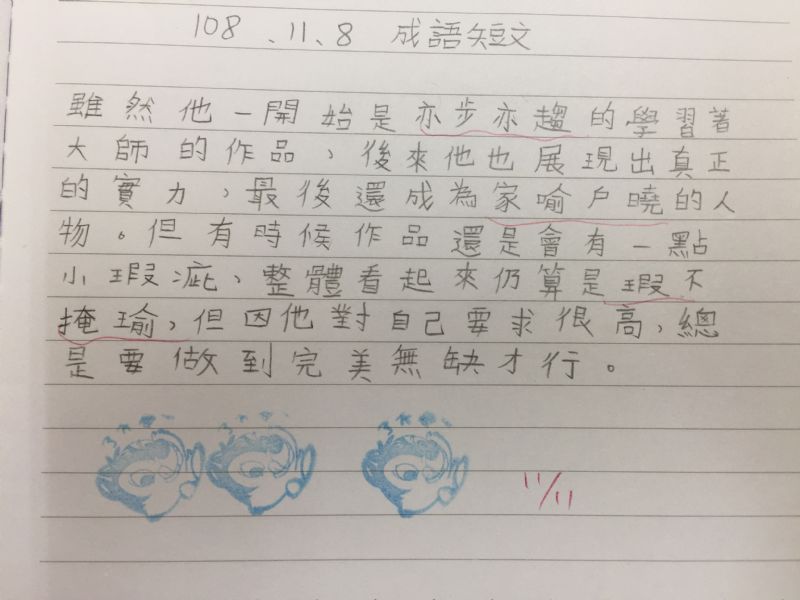 108、11、8 成語短文
雖然他一開始是亦步亦趨的學習著
大師的作品、後來他也展現出真正
的實力，最後還成為家喻戶曉的人
物。但有時候作品還是會有一點
小瑕疵、整體看起來仍算是瑕不
掩瑜，但因他對自己要求很高，總
是要做到完美無缺才行。
11/11